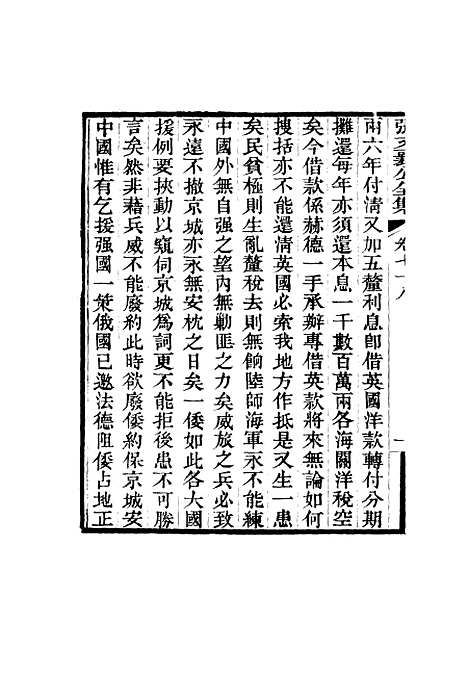 張文襄公全集 卷七十八 一
兩六年付清又加五釐利息卽借英國洋款轉付分期
攤還每年亦須還本息一千數百萬兩各海關洋稅空
矣今借款係赫德一手承辦專借英款將來無論如何
搜括亦不能還清英國必索我地方作抵是又生一患
矣民貧極則生亂釐稅去則無餉陸師海軍永不能練
中國外無自强之望內無勦匪之力矣威旅之兵必致
永遠不撤京城亦永無安枕之日矣一倭如此各大國
援例要挾動以窺伺京城爲詞更不能拒後患不可勝
言矣然非藉兵威不能廢約此時欲廢倭約保京城安
中國惟有乞援强國一策俄國已邀法德阻倭占地正